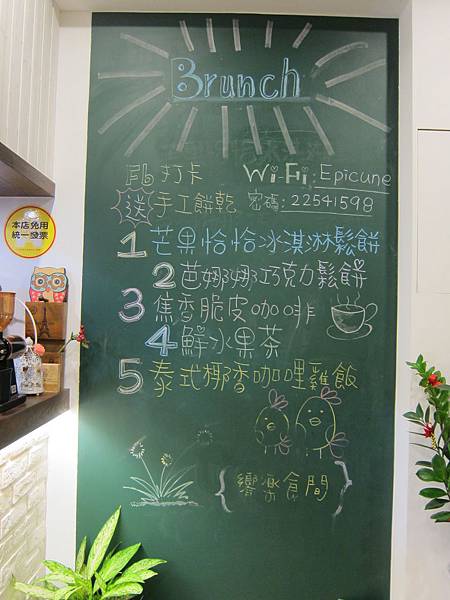 Brunch
FB 打卡
送 手工餅乾
Wi-Fi: Epicune
密碼: 22541598
1 芒果恰恰冰淇淋鬆餅
2 芭娜娜巧克力鬆餅
3 焦香脆皮咖啡
4 鮮水果茶
5 泰式椰香咖哩雞飯
{饗樂食間}
本店免用
統一發票